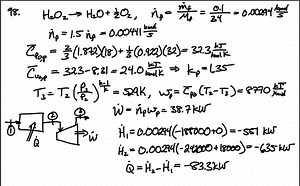 98. H₂O₂ → H₂O + ½O₂, ṅ_F = ṁ_F/M_F = 0.1/34 = 0.00294 kmol/s
ṅ_P = 1.5 ṅ_F = 0.00441 kmol/s
C̄_Pop = ⅔(1.872)(18) + ⅓(0.922)(32) = 32.3 kJ/kmol K
C̄_vop = 32.3 - 8.31 = 24.0 kJ/kmol K → k_p = 1.35
T₃ = T₂(P₃/P₂)^(k-1)/k = 529K, w_T = C̄_po(T₂-T₃) = 8770 kJ/kmol
Ẇ = ṅ_P w_T = 38.7 kW
Ḣ₁ = 0.00294(-188000+0) = -551 kW
Ḣ₂ = 0.00294(-242000+18000) = -635 kW
Q̇ = Ḣ₂ - Ḣ₁ = -83.3 kW
1
2
3
Q̇
Ẇ